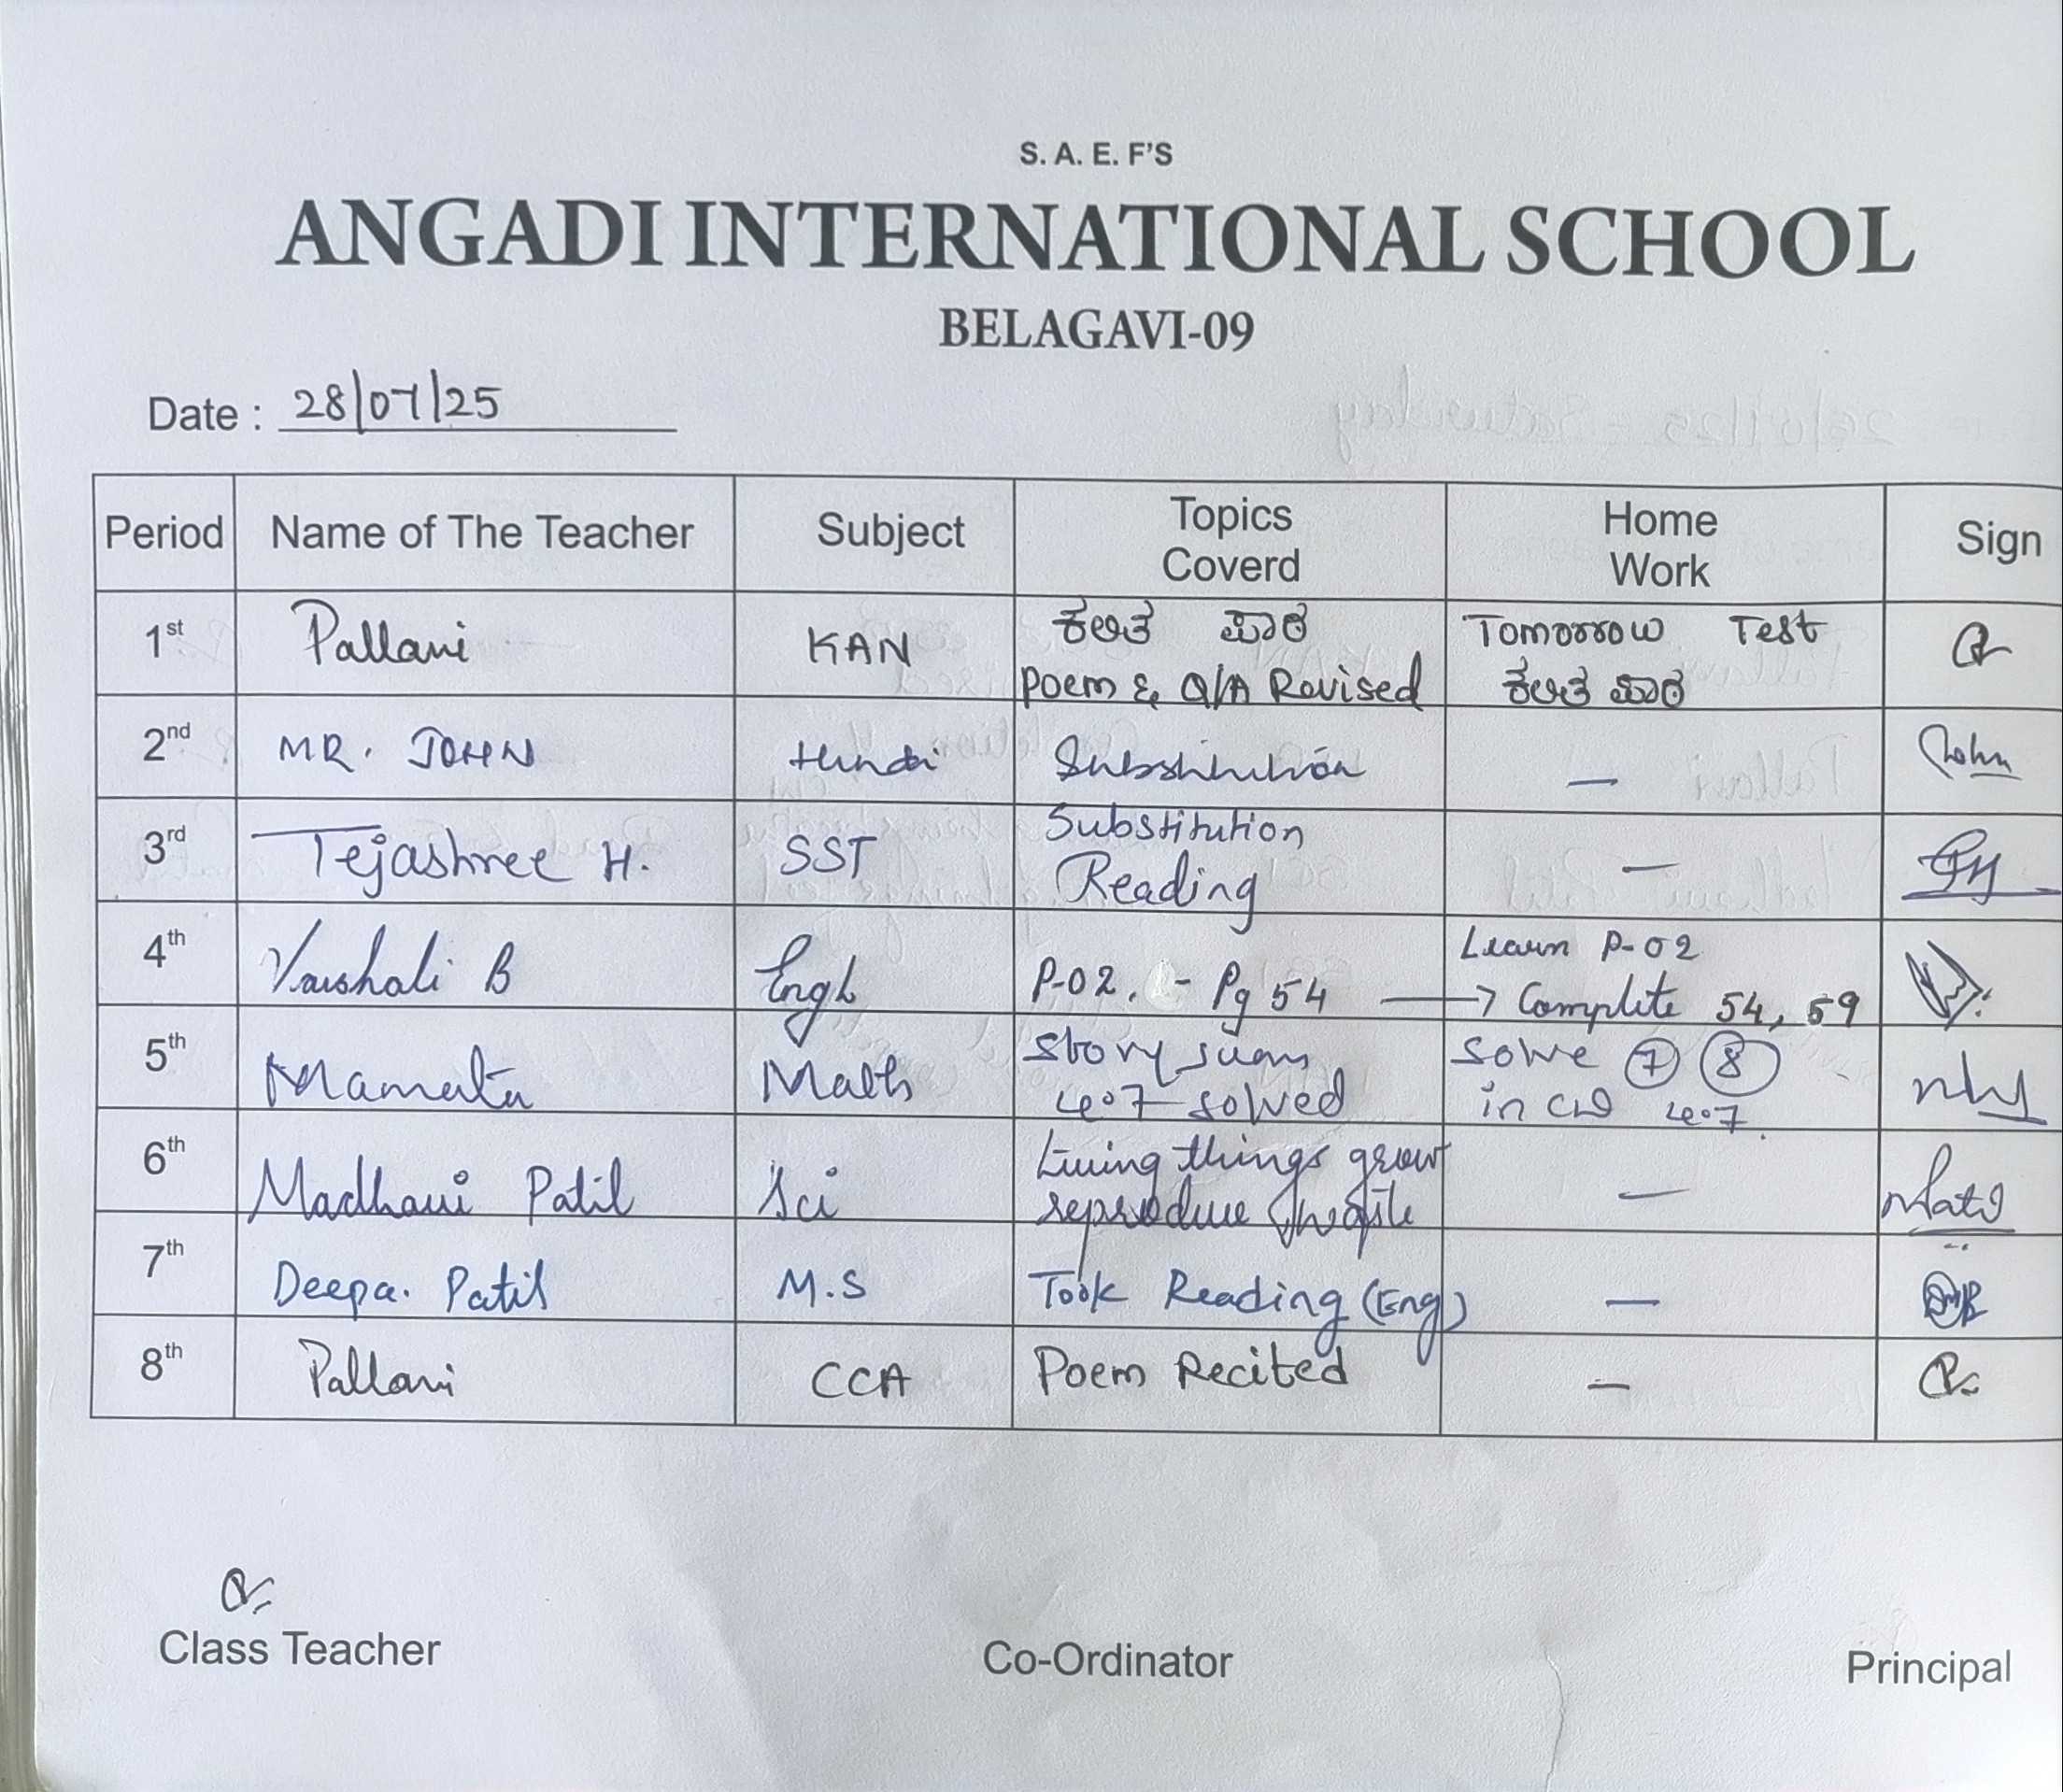 S. A. E. F'S
ANGADI INTERNATIONAL SCHOOL
BELAGAVI-09
Date : 28/07/25
Period Name of The Teacher Subject Topics Coverd Home Work Sign
1st Pallavi KAN
Poem & Q/A Revised
Tomorrow Test
2nd MR. JOHN Hindi Substitution — John
3rd Tejashree H. SST Substitution
Reading —
4th Vaishali B Engl P-02. - Pg 54 → Learn P-02
Complete 54, 59
5th Mamata Math Story sums
4.7 solved
Solve 7 8
in CW 4.7.
6th Madhavi Patil Sci Living things grow
reproduce —
7th Deepa. Patil M.S Took Reading (Eng) —
8th Pallavi CCA Poem Recited —
Class Teacher Co-Ordinator Principal